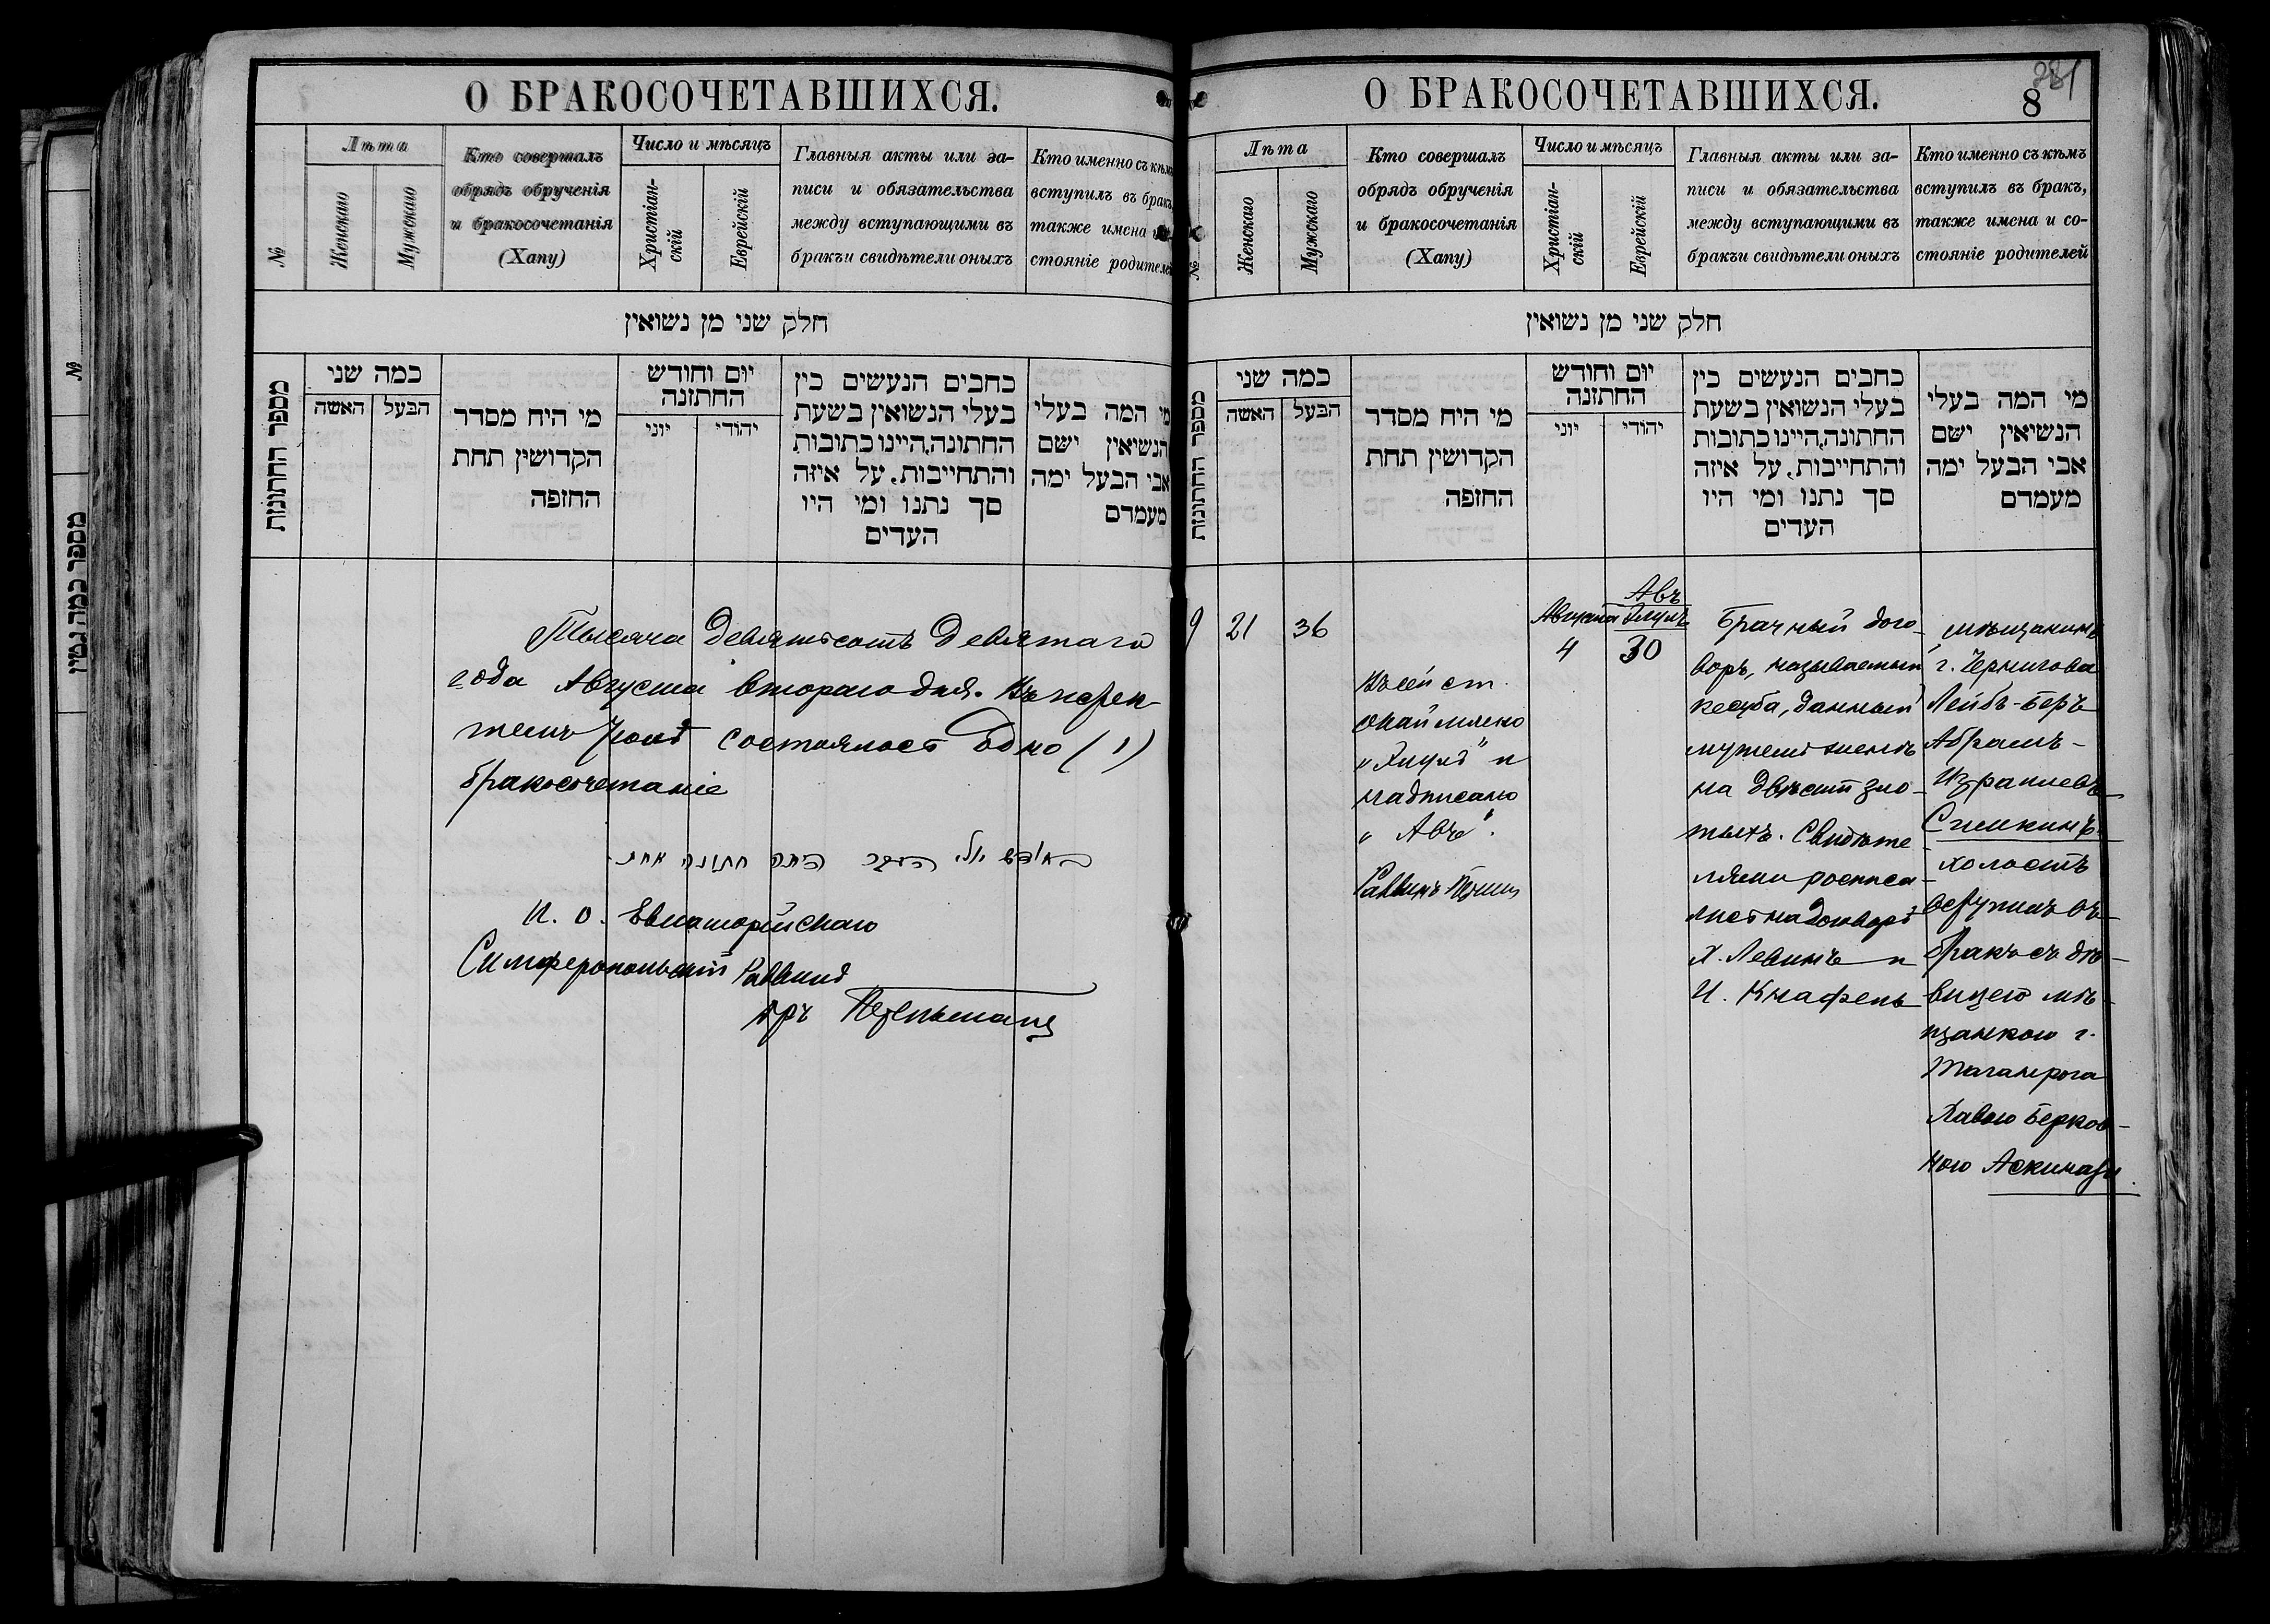 О БРАКОСОЧЕТАВШИХСЯ.
№
Лѣта
Женскаго
Мужскаго
Кто совершалъ
обрядъ обрученія
и бракосочетанія
(Хапу)
Число и мѣсяцъ
Христіан-
скій
Еврейскій
Главныя акты или за-
писи и обязательства
между вступающими въ
бракъи свидѣтели оныхъ
Кто именно съ кѣмъ
вступилъ въ бракъ,
также имена
стояніе родителей
חלק שני מן נשואין
מספר החתונות
כמה שני
האשה
הבעל
מי היח מסדר
הקדושין תחת
החזפה
יום וחודש
החתזנה
יוני
יהודי
כחבים הנעשים כין
בעלי הנשואין בשעת
החתונה,היינו כתובות
והתחייבות. על איזה
סך נתנו ומי היו
העדים
מי המה בעלי
הנשיאין ישם
אבי הבעל ימה
מעמדם
Тысяча девятьсотъ девятаго
года Августа второго дня. Въ истек-
шемъ Іюлѣ состоялось одно (1)
бракосочетаніе
בחודש יולי העבר היתה חתונה אחת
И. О. Евпаторійскаго
Симферопольскій Раввинъ
О БРАКОСОЧЕТАВШИХСЯ.
281
8
№
Лѣта
Женскаго
Мужскаго
Кто совершалъ
обрядъ обрученія
и бракосочетанія
(Хапу)
Число и мѣсяцъ
Христіан-
скій
Еврейскій
Главныя акты или за-
писи и обязательства
между вступающими въ
бракъи свидѣтели оныхъ
Кто именно съ кѣмъ
вступилъ въ бракъ,
также имена и со-
стояніе родителей
חלק שני מן נשואין
מספר החתונות
כמה שני
האשה
הבעל
מי היח מסדר
הקדושין תחת
החזפה
יום וחודש
החתזנה
יוני
יהודי
כחבים הנעשים כין
בעלי הנשואין בשעת
החתונה,היינו כתובות
והתחייבות. על איזה
סך נתנו ומי היו
העדים
מי המה בעלי
הנשיאין ישם
אבי הבעל ימה
מעמדם
9
21
36
Въ сей ст.
"Элулъ" и
надписано
"Авъ".
Раввинъ
Августа
4
Авъ
Элулъ
30
Брачный дого-
воръ, называемый
кесуба, данный
мужемъ женѣ
на двѣсти зло-
тыхъ. Свидѣте
лями росписа-
лись на договорѣ
Х. Левинъ и
И. Кнафель
мѣщанинъ
г. Чернигова
Лейбъ-Беръ
Абрамъ-
Израилевъ
Симкинъ
холостъ
вступилъ въ
бракъ съ дѣ-
вицею мѣ-
щанкою г.
Таганрога
Хавою Берков-
ною Аскинази.
מספר כמה גטין
№